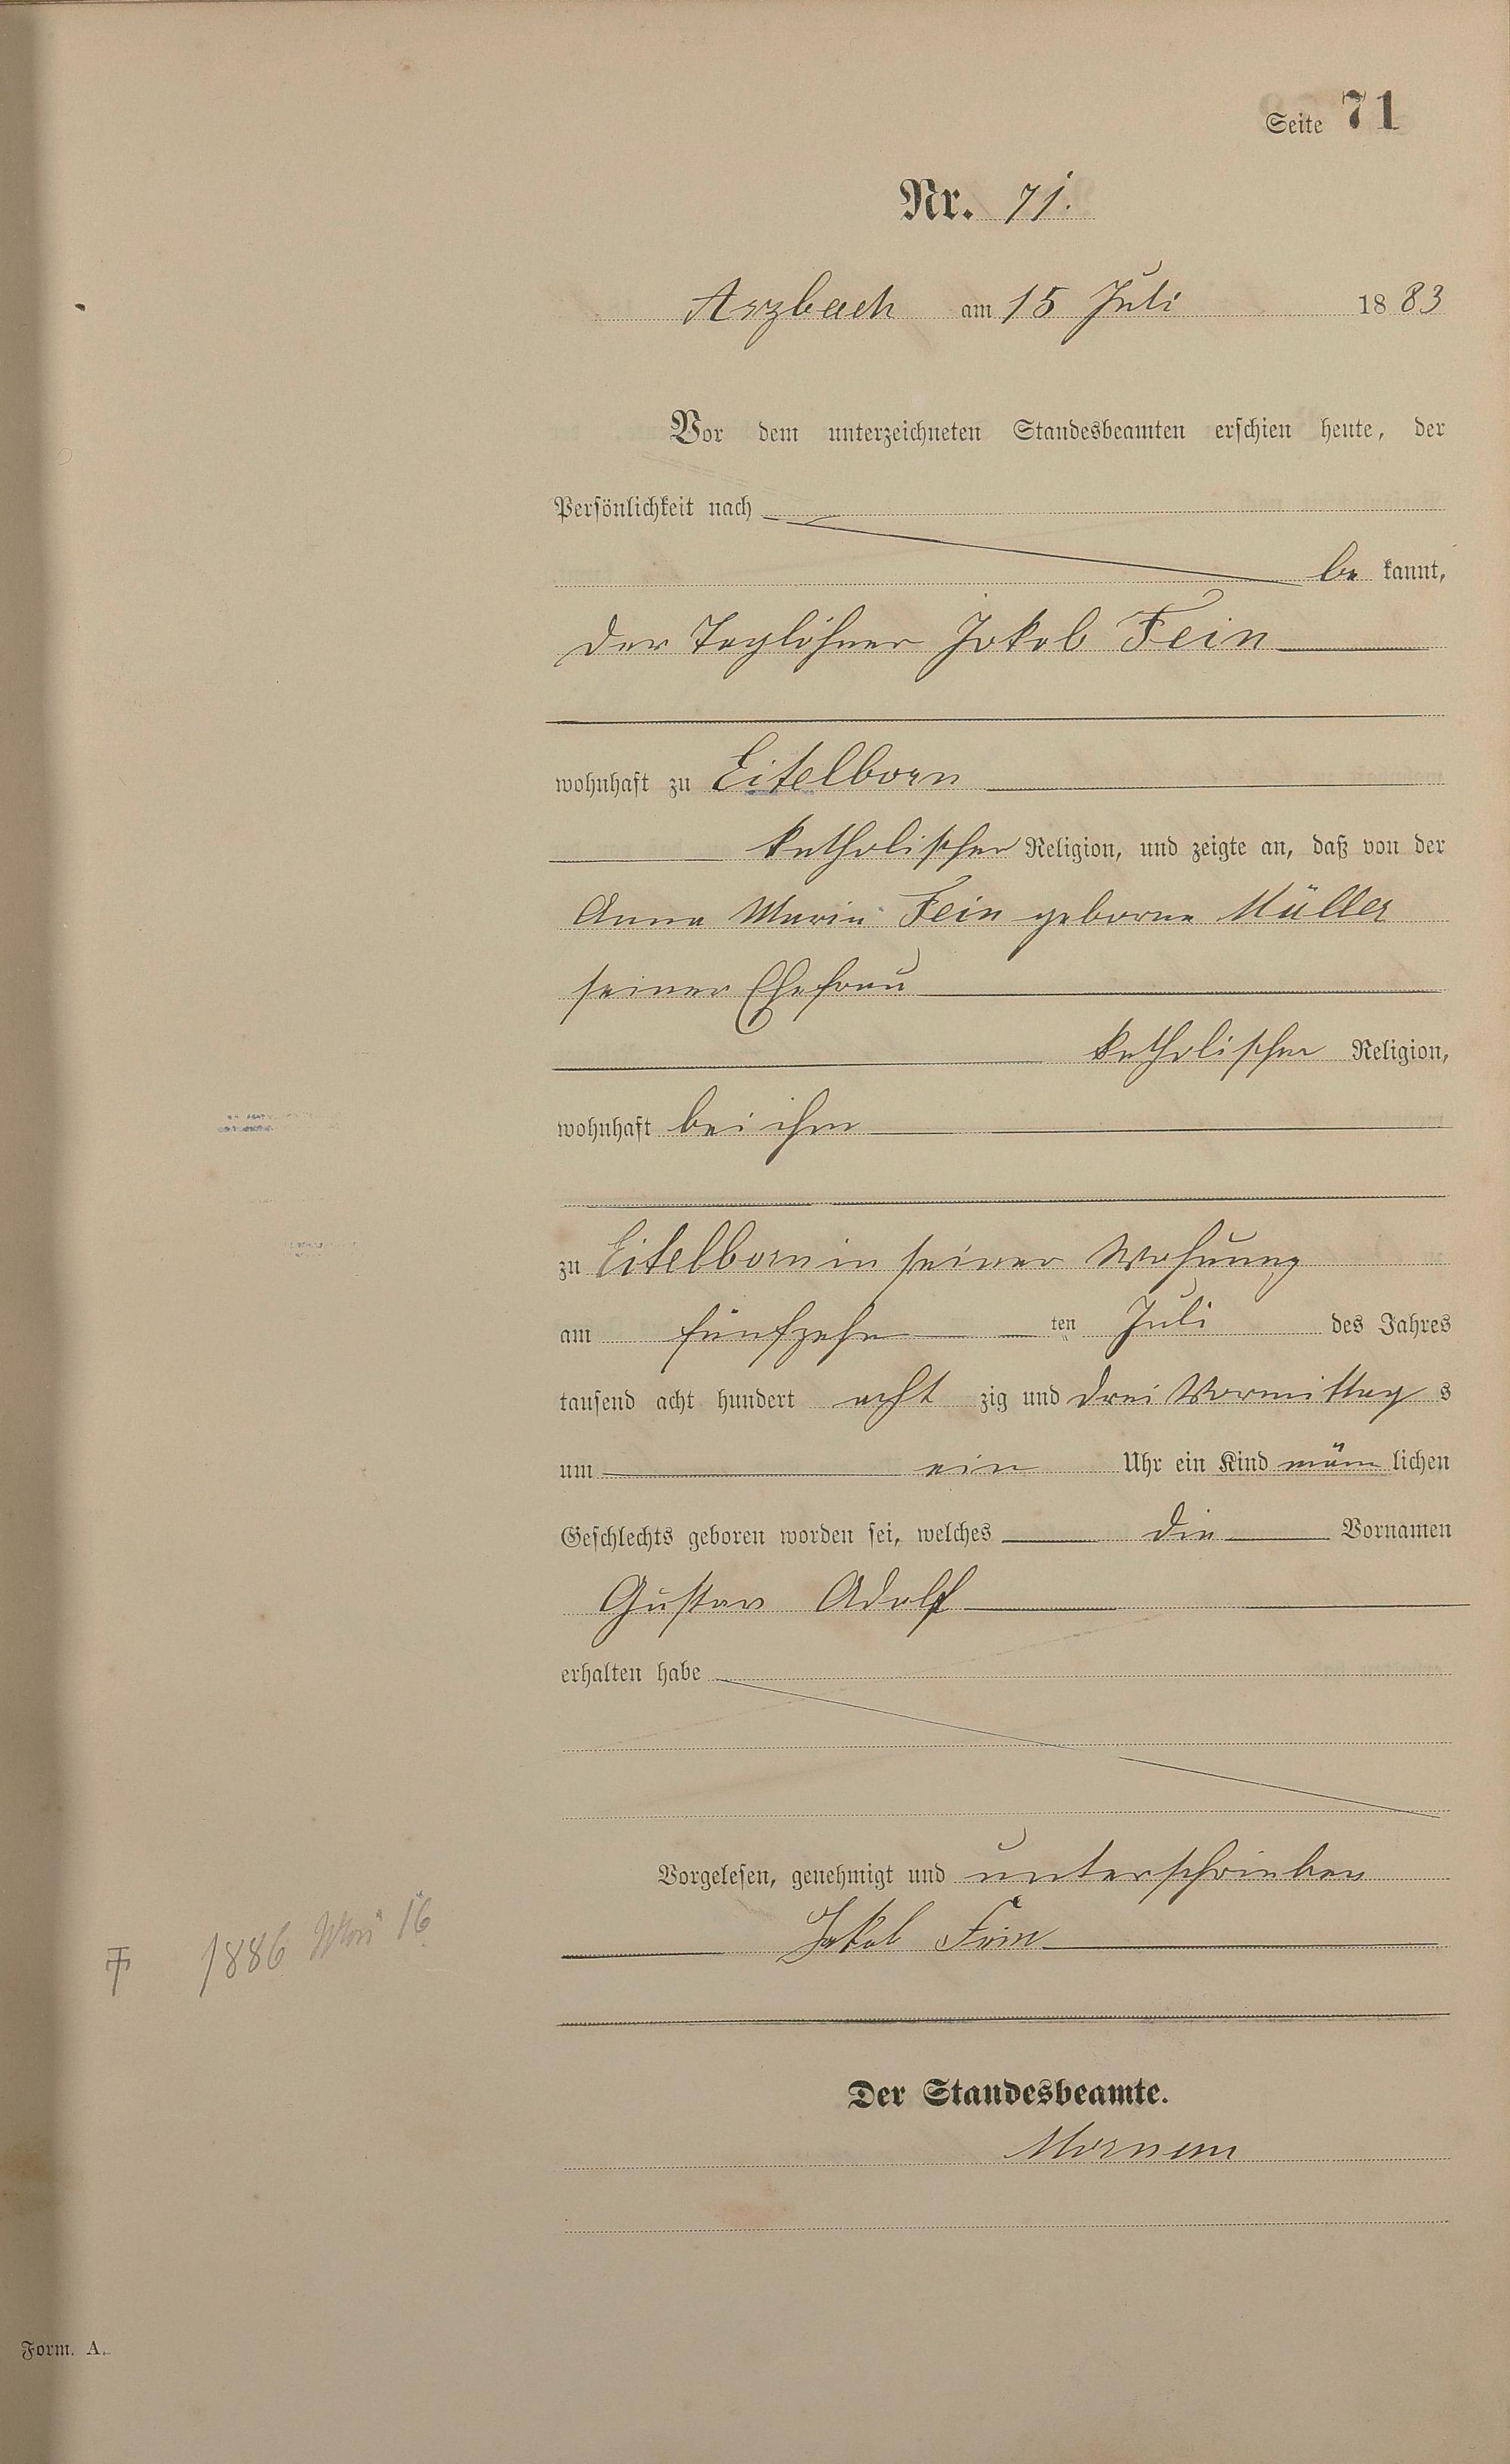 Seite 71
Nr. 71.
Arzbach am 15 Juli 1883
Vor dem unterzeichneten Standesbeamten erschien heute, der
Persönlichkeit nach
be kannt,
der Taglöhner Jakob Fein
wohnhaft zu Eitelborn
katholischer Religion, und zeigte an, daß von der
Anna Maria Fein geborne Müller
seiner Ehefrau
katholischer Religion,
wohnhaft bei ihm
zu Eitelborn in seiner Wohnung
am fünfzehn ten Juli des Jahres
tausend acht hundert acht zig und drei Vormittag s
um ein Uhr ein Kind männ lichen
Geschlechts geboren worden sei, welches die Vornamen
Gustav Adolf
erhalten habe
Vorgelesen, genehmigt und unterschrieben
Jakob Fein
† 1886 16
Der Standesbeamte.
Form. A.